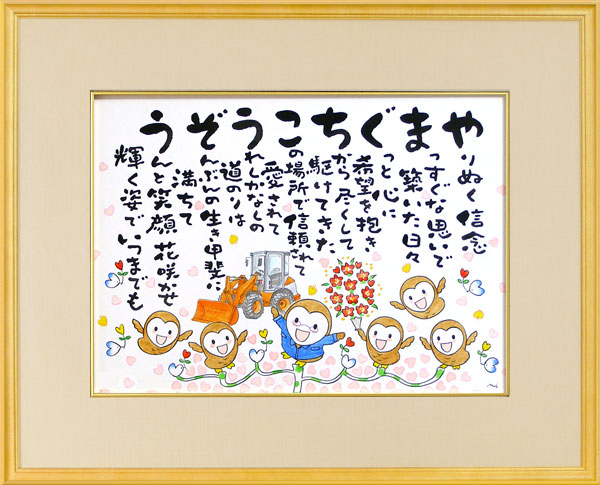 やまぐちこうぞう
りぬく信念
っすぐな思いで
築いた日々
っと心に
希望を抱き
から尽くして
駆けてきた
の場所で信頼されて
愛されて
れしかなしの
道のりは
んぶんの生き甲斐に
満ちて
んと笑顔 花咲かせ
輝く姿でいつまでも